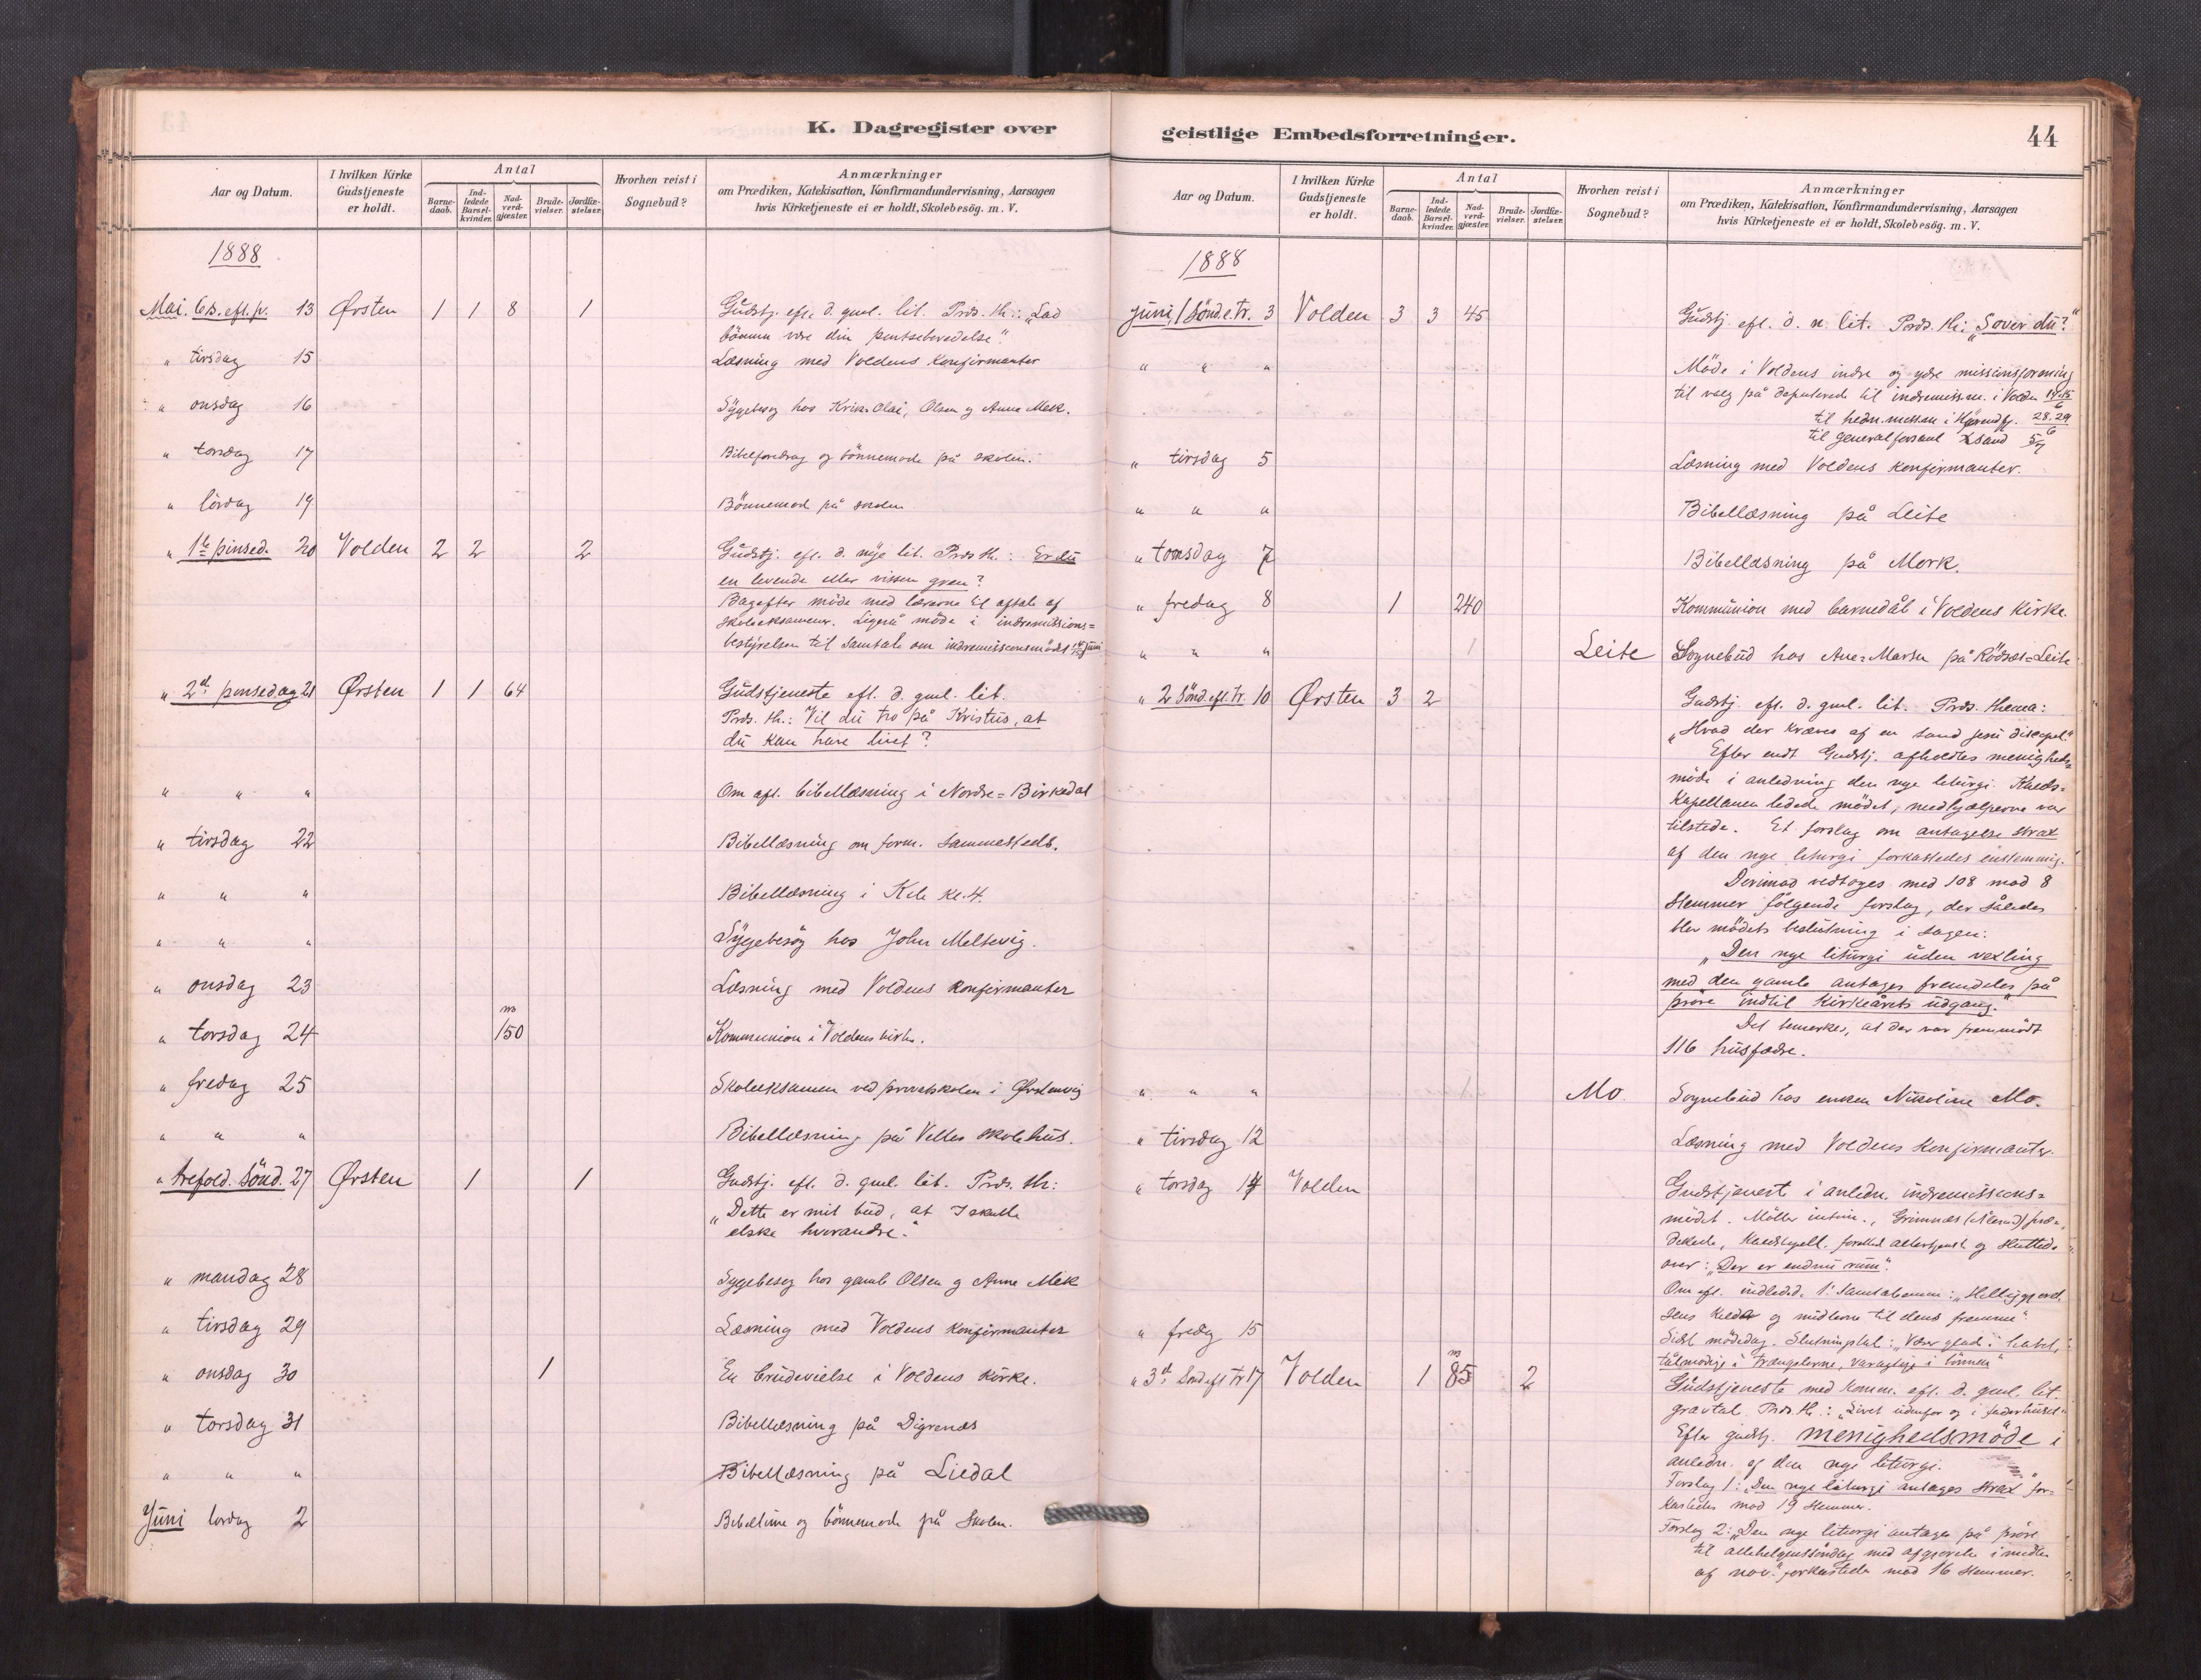 K. Dagregister over
Aar og Datum.
I hvilken Kirke Gudstjeneste er holdt.
Antal
Barne-daab.
Ind-ledede Barsel-kvinder.
Nad-verd-gjæster.
Brude-vielser.
Jordfæ-stelser.
Hvorhen reist i Sognebud?
Anmærkninger
om Prædiken, Katekisation, Konfirmandundervisning, Aarsagen
hvis Kirketjeneste ei er holdt, Skolebesög. m. V.
1888
Mai. 6s. eft. p. 13 Ørsten 1 1 8 1 Gudstj. eft. d. gml. lit. Præd. th.: „Lad
bönnen være din pintseberedelse".
" tirsdag 15 Læsning med Voldens Konfirmanter
" onsdag 16 Sygebesøg hos Olai, Olsen og Anna Mek.
" torsdag 17 Bibelforedrag og bönnemøde på skolen.
" lördag 19 Bönnemøde på skolen
" 1ste pinsed. 20 Volden 2 2 2 Gudstj. eft. d. nye lit. Præd. th.: Er du
en levende eller vissen gren?
Bagefter möde med lærerne til aftale af
skoleeksamener. Ligeså möde i indremissions=
bestyrelsen til samtale om indremissionsmödet juni
" 2den pinsedag 21 Ørsten 1 1 64 Gudstjeneste eft. d. gml. lit.
Præd. th.: Vil du tro på Kristus, at
du kan have livet?
" " " Om eft. bibellæsning i Nordre=Birkedal
" tirsdag 22 Bibellæsning om form. sammesteds.
" " " Bibellæsning i Kile kl. 4.
" " " Sygebesög hos John Meltevig.
" onsdag 23 Læsning med Voldens Konfirmanter
" torsdag 24 150 Kommunion i Voldens kirke.
" fredag 25 Skoleeksamen ved privatskolen i Ørstenvig
" " " Bibellæsning på Velles skolehus.
" trefold. Sönd. 27 Ørsten 1 1 Gudstj. eft. d. gml. lit. Præd. th:
„Dette er mit bud, at I skulle
elske hverandre."
" mandag 28 Sygebesøg hos gamle Olsen og Anne Mek
" tirsdag 29 Læsning med Voldens Konfirmanter
" onsdag 30 1 En brudevielse i Voldens kirke.
" torsdag 31 Bibellæsning på Digrenæs
" " " Bibellæsning på Liedal
Juni lørdag 2 Bibeltime og bönnemøde på Skolen.
geistlige Embedsforretninger.
44
Aar og Datum.
I hvilken Kirke Gudstjeneste er holdt.
Antal
Barne-daab.
Ind-ledede Barsel-kvinder.
Nad-verd-gjæster.
Brude-vielser.
Jordfæ-stelser.
Hvorhen reist i Sognebud?
Anmærkninger
om Prædiken, Katekisation, Konfirmandundervisning, Aarsagen
hvis Kirketjeneste ei er holdt, Skolebesög. m. V.
1888
Juni, 1 Sönd. e. Tr. 3 Volden 3 3 45 Gudstj. eft. d. n. lit. Præd. th: „Sover du?"
" " " Möde i Voldens indre og ydre missionsforening
til valg på deputerede til indremissm. i Volden 14.15/6
til hedn. missm i Hjörundfj. 28.29/6
til generalforsaml Xsand 5/7
" tirsdag 5 Læsning med Voldens Konfirmanter.
" " " Bibellæsning på Leite
" torsdag 7 Bibellæsning på Mork.
" fredag 8 1 240 Kommunion med barnedåb i Voldens Kirke.
" " " 1 Leite Sognebud hos Ane=Marta på Rödsæt=Leite
" 2 Sönd. eft. Tr. 10 Ørsten 3 2 Gudstj. eft. d. gml. lit. Præd. thema:
„Hvad der kræves af en sand Jesu discipel."
Efter endt Gudstj. afholdtes menigheds=
möde i anledning den nye liturgi. Kalds=
Kapellanen ledede mödet, medhjælperne var
tilstede. Et forslag om antagelse strax
af den nye liturgi forkastedes enstemmig.
Derimod vedtoges med 108 mod 8
Stemmer fölgende forslag, der således
blev mödets beslutning i sagen:
„Den nye liturgi uden vexling
med den gamle antages fremdeles på
prøve indtil Kirkeårets udgang."
Det bemerkes, at der var fremmödt
116 husfædre.
" " " 1 Mo Sognebud hos enken Nikoline Mo.
" tirsdag 12 Læsning med Voldens Konfirmanter.
" torsdag 14 Volden Gudstjenest i anledn. indremissions=
mödet. Möller intim., Grimnæs (Ålesund) præ=
dikede, Kaldskapell. forrettede altertjenest og sluttede
over: „Der er endnu rum".
Om eft. indlededes 1ste samtaleemne: „Helliggjørel-
sens og midlerne til dens fremme".
Sidst mödedag. Slutningstal: „Vær glad i håbet,
tålmodige i trængslerne, varagtige i bönnen"
" fredag 15
" 3die Sönd eft Tr 17 Volden 1 85 2 Gudstjeneste med Komm. eft. d. gml. lit.
gravtal. Præd. th.: „Livet udenfor og i faderhuset"
Efter gudstj. menighedsmöde i
anledn. af den nye liturgi.
Forslag 1: „Den nye liturgi antages strax" for=
kastedes mod 19 stemmer.
Forslag 2: „Den nye liturgi antages på pröve
til allehelgenssöndag med afgjørelse i midten
af nov." forkastede mod 16 stemmer.